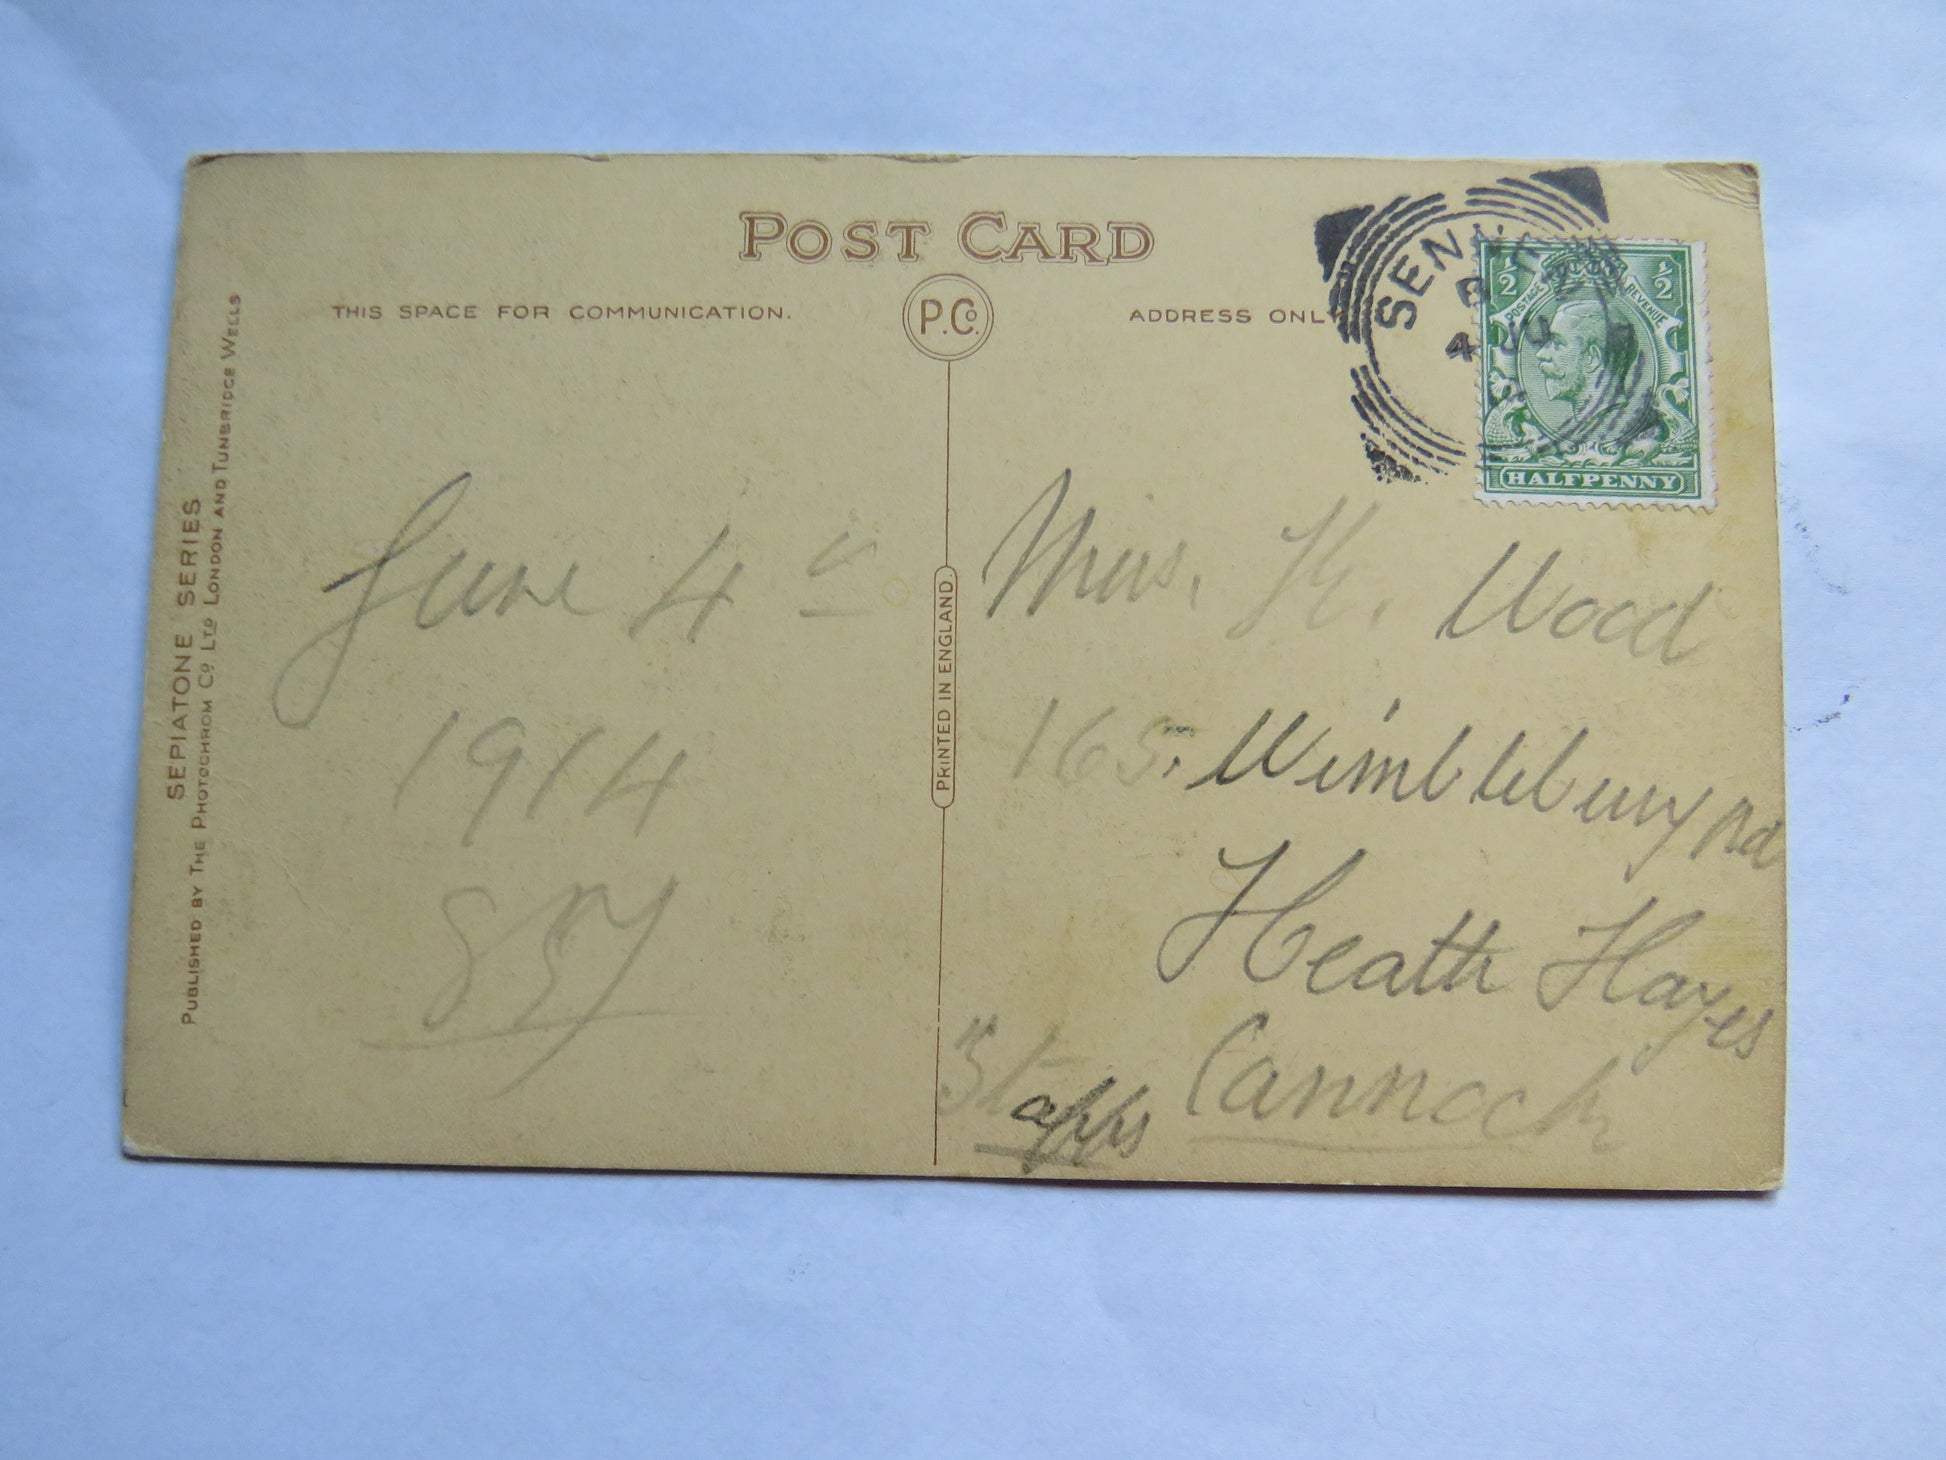 POST CARD
THIS SPACE FOR COMMUNICATION.
P.Co.
ADDRESS ONL
SEN
4 JU
½ ½
POSTAGE REVENUE
HALFPENNY
SEPIATONE SERIES
PUBLISHED BY THE PHOTOCHROM Co LTD LONDON AND TUNBRIDGE WELLS
PRINTED IN ENGLAND.
June 4
1914
Miss. H. Wood
165, Wimblebury Rd
Heath Hayes
Cannock
Staffs